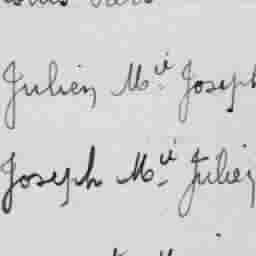 Julien Mie Joseph
Joseph Mie Julien